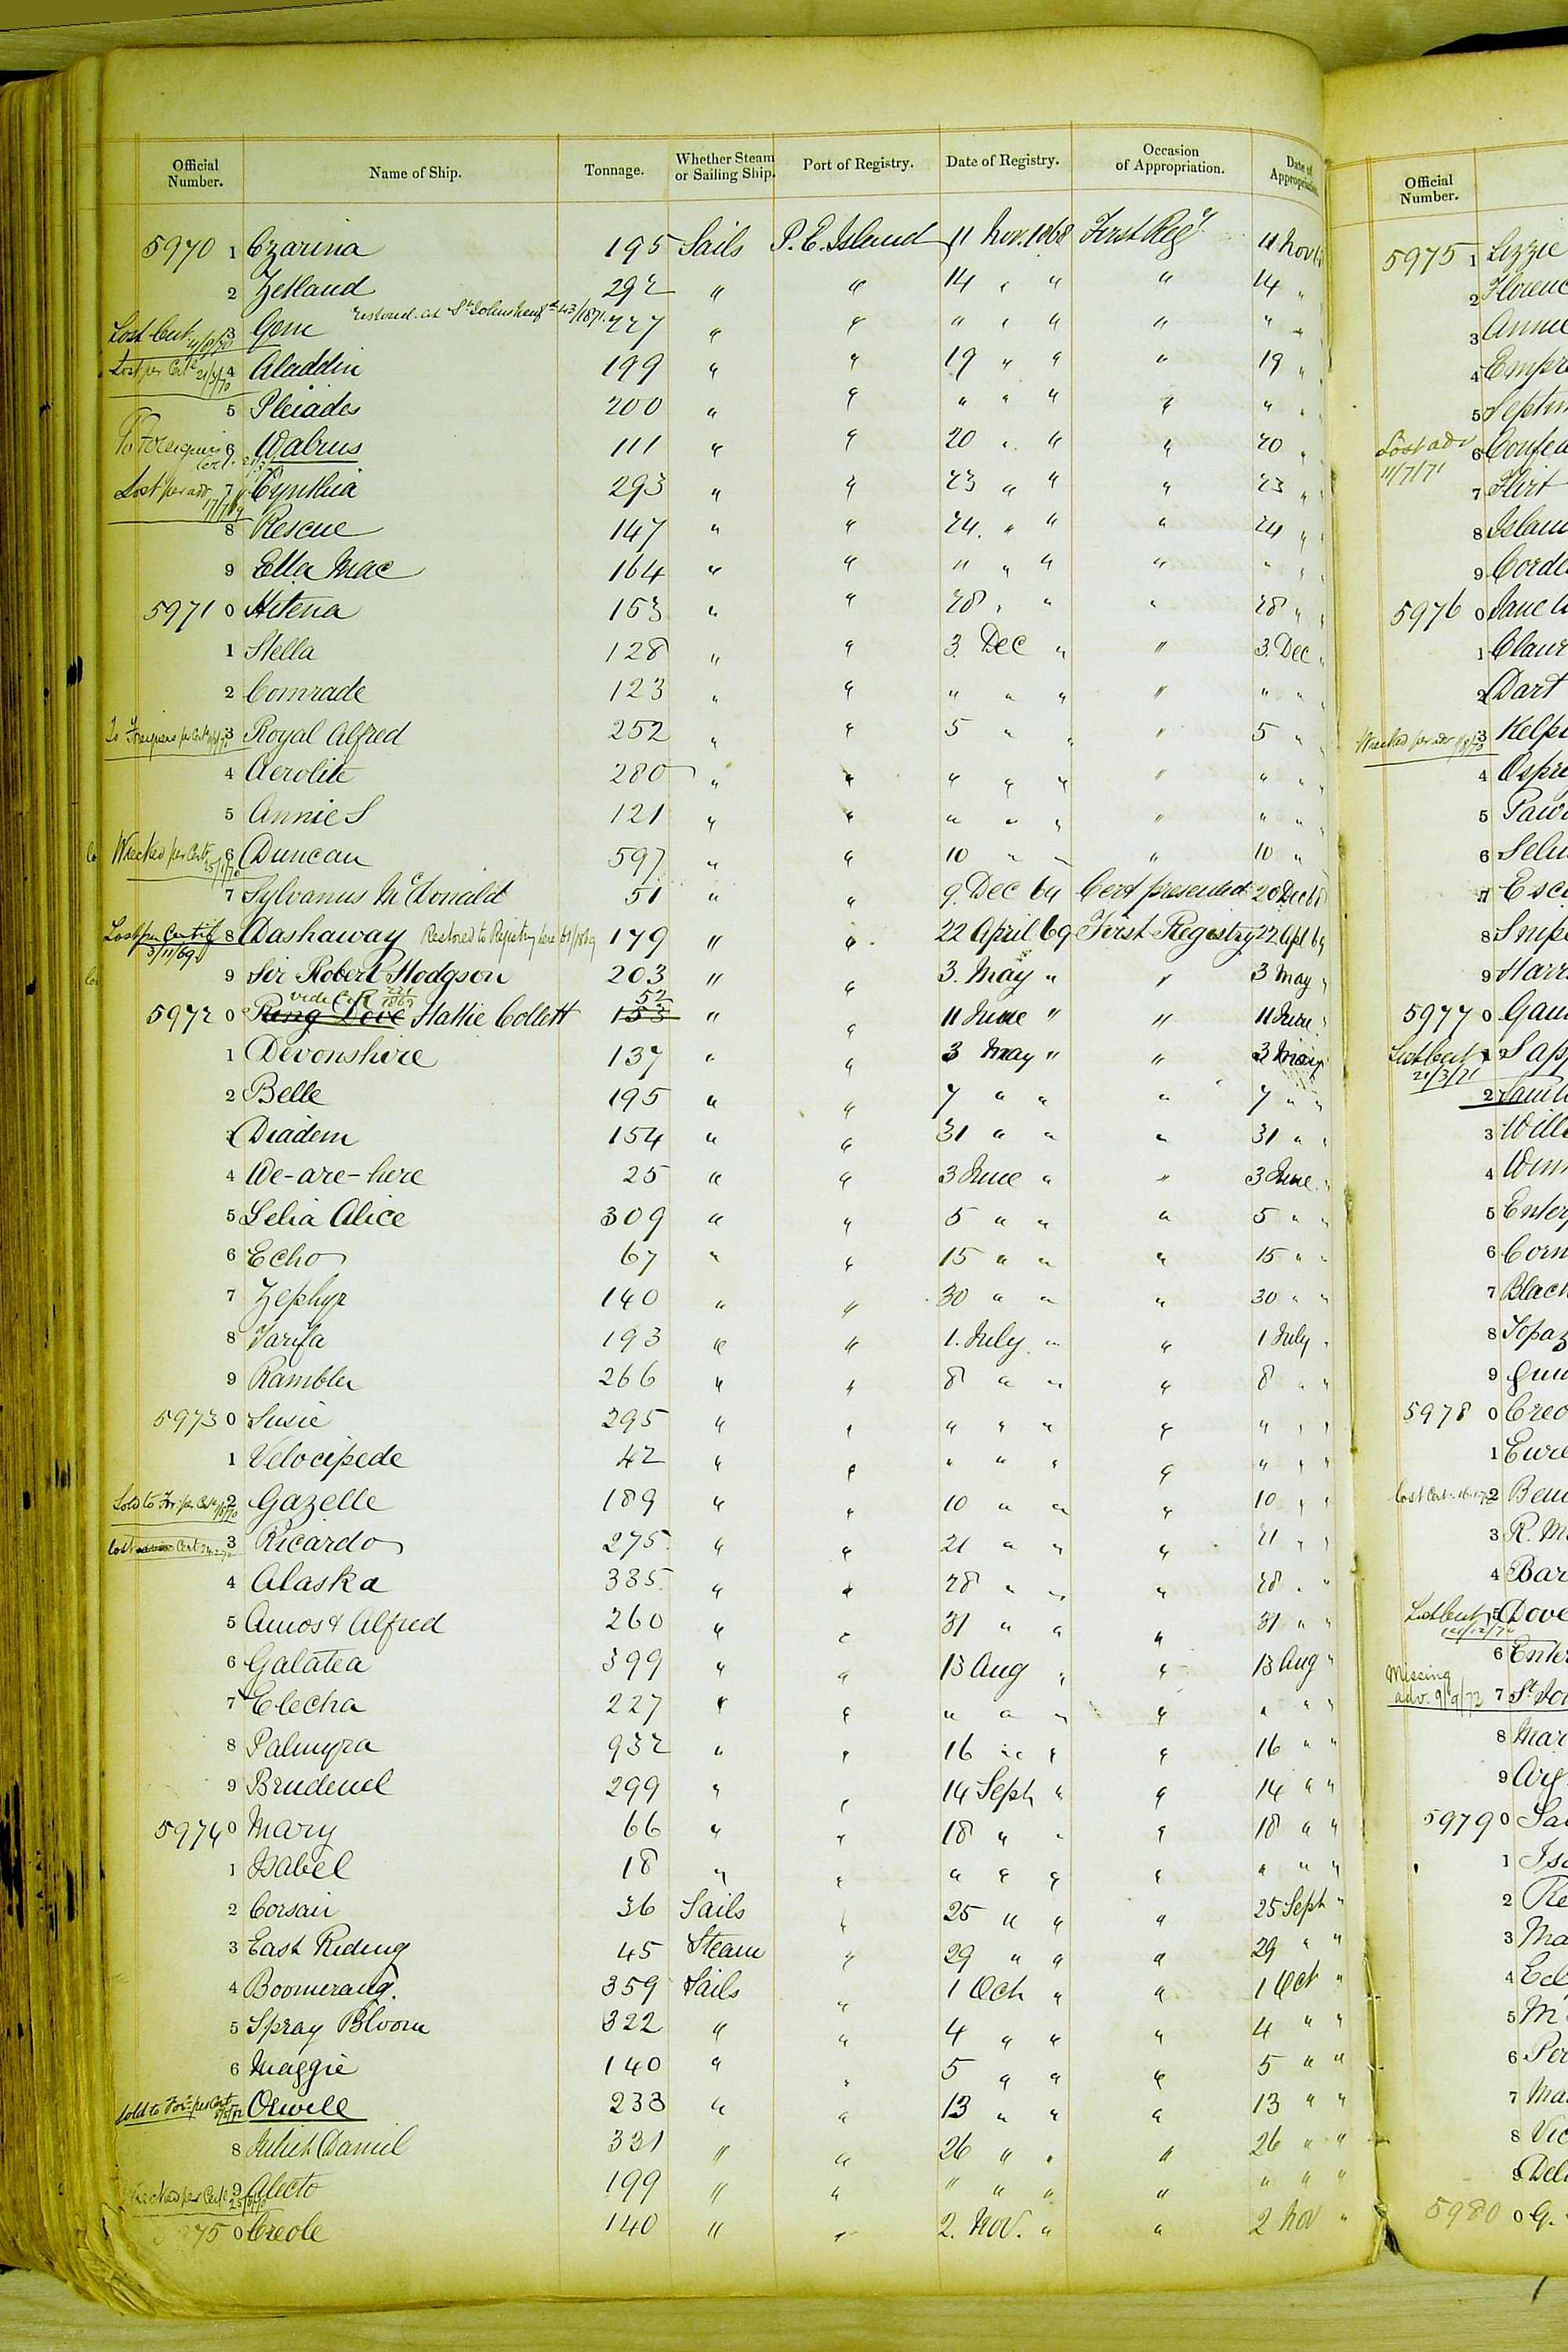 Official Number. Name of Ship. Tonnage. Whether Steam or Sailing Ship. Port of Registry. Date of Registry. Occasion of Appropriation. Date of Appropriation.
5970 1 Czarina 195 Sails P.E. Island 11 Nov. 1868 First Regy 11 Nov
2 Zetland 292 " " 14 " " " 14 "
Lost Cert 3 Gem restored at 43/1871 227 " " " " " " " "
Lost per Cert 4 Aladdin 199 " " 19 " " " 19 "
5 Pleiades 200 " " " " " " " "
To Foreigners 6 Walrus 111 " " 20 " " " 20 "
Lost per adv 7 Cynthia 293 " " 23 " " " 23 "
8 Rescue 147 " " 24. " " " 24 "
9 Ella Mac 164 " " " " " " " "
5971 0 153 " " 28 " " " 28 "
1 Stella 128 " " 3. Dec " " 3. Dec "
2 Comrade 123 " " " " " " " "
To Foreigners per Cert 3 Royal Alfred 252 " " 5 " " " 5 "
4 Aerolite 280 " " " " " " " "
5 Annie S 121 " " " " " " " "
Wrecked per Cert 6 Duncan 597 " " 10 " " " 10 "
7 Sylvanus McDonald 51 " " 9. Dec 64 Cert presented 20 Dec 68
Lost per Certif 3/11/69 8 Dashaway Restored to Registry here 179 " " 22 April 69 First Registry 22 Apl 69
9 Sir Robert Hodgson 203 " " 3. May " " 3 May "
vide C.R. 52
5972 0 Ring Dove Hattie Collett 153 " " 11 June " " 11 June "
1 Devonshire 137 " " 3 May " " 3 May
2 Belle 195 " " 7 " " " 7 " "
3 Diadem 154 " " 31 " " " 31 " "
4 We-are-here 25 " " 3 June " " 3 June "
5 Lelia Alice 309 " " 5 " " " 5 " "
6 Echo 67 " " 15 " " " 15 " "
7 Zephyr 140 " " 30 " " " 30 " "
8 Tarifa 193 " " 1. July " " 1 July "
9 Rambler 266 " " 8 " " " 8 " "
5973 0 Susie 295 " " " " " " " " "
1 Velocipede 42 " " " " " " " " "
Sold to For. per Cert 2 Gazelle 189 " " 10 " " " 10 " "
Lost Cert 3 Ricardo 275 " " 21 " " " 21 " "
4 Alaska 335 " " 28 " " " 28 " "
5 Amos & Alfred 260 " " 31 " " " 31 " "
6 Galatea 399 " " 13 Aug " " 13 Aug "
7 Electra 227 " " " " " " " " "
8 Palmyra 932 " " 16 " " " 16 " "
9 Brudenel 299 " " 14 Sept " " 14 " "
5974 0 Mary 66 " " 18 " " " 18 " "
1 Isabel 18 " " " " " " " " "
2 Corsair 36 Sails " 25 " " " 25 Sept "
3 East Riding 45 Steam " 29 " " " 29 " "
4 Boomerang. 359 Sails " 1 Oct " " 1 Oct "
5 Spray Bloom 322 " " 4 " " " 4 " "
6 Maggie 140 " " 5 " " " 5 " "
Sold to For. per Cert Orwell 233 " " 13 " " " 13 " "
8 Juliet Daniel 331 " " 26 " " " 26 " "
Wrecked per Cert 9 Alecto 199 " " " " " " " " "
5975 0 Creole 140 " " 2. Nov. " " 2 Nov "
Official Number.
5975 1 Lizzie
2 Florenc
3 Annie
4 Empre
5 Septim
Lost adv 11/7/71 6
7 Flirt
8 Islan
9 Corde
5976 0 Jane
1
2 Dart
Wrecked per adv 3 Kelpi
4 Ospre
5
6
7
8 Snip
9 Harri
5977 0
Lost cert 21/3/71 1 Sap
2
3 Will
4 Winn
5 Enter
6 Corn
7 Black
8 Topaz
9
5978 0 Creo
1 Eure
Lost Cert. 2
3 R. M
4 Bar
Lost Cert 5 Dove
6 Enter
Missing adv. 9/9/72 7 St. Jo
8 Mar
9
5979 0
1 Isa
2
3 Ma
4
5 M
6 Per
7 Ma
8 Vic
9 Del
5980 0 G.